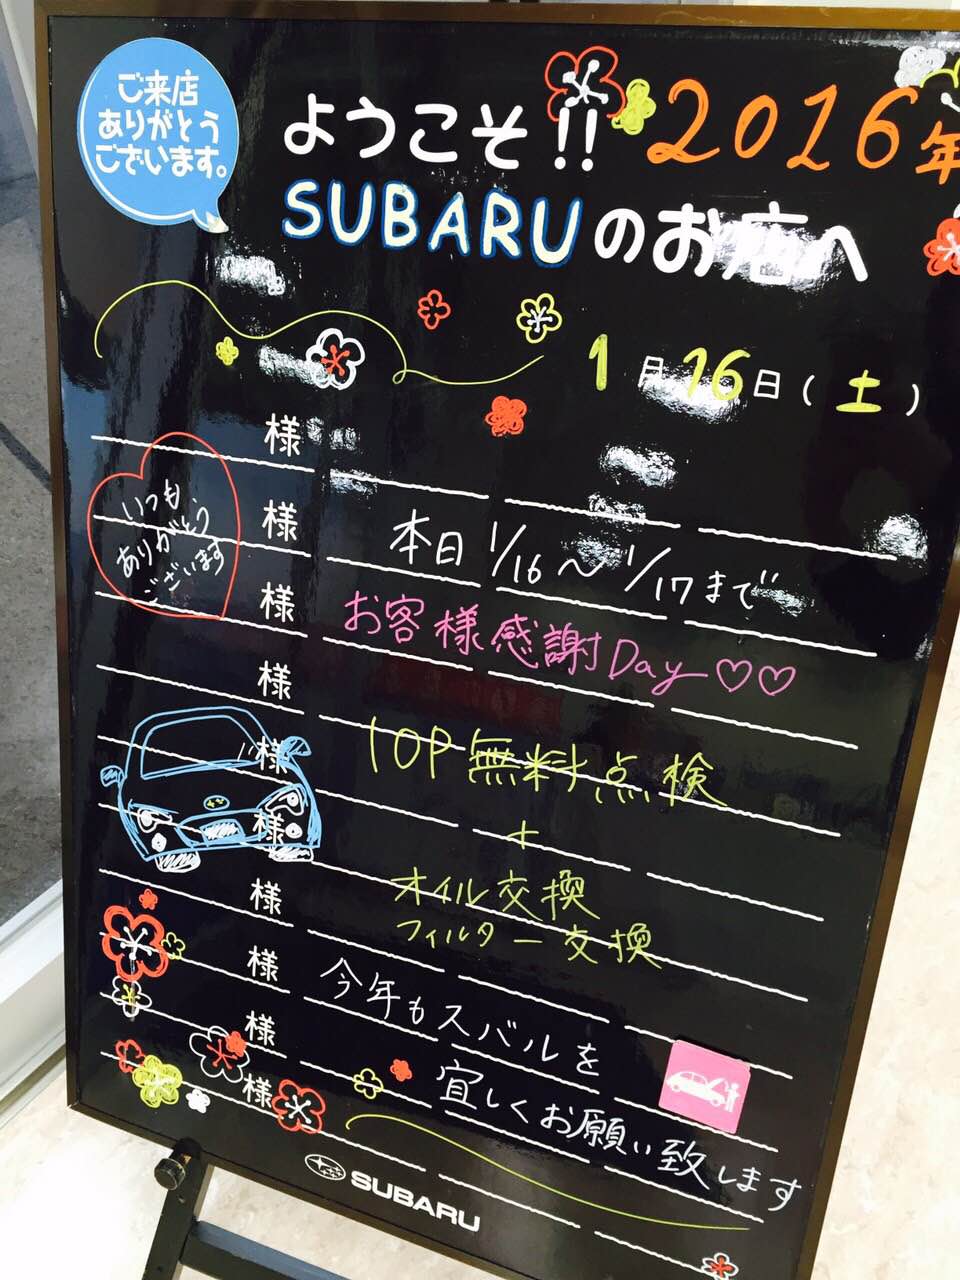 ご来店
ありがとう
ございます。
ようこそ!! 2016年
SUBARUのお店へ
1月16日(土)
様
様
様
様
様
様
様
様
様
様
いつも
ありがとう
ございます
本日1/16～1/17まで
お客様感謝Day♡♡
10P無料点検
+
オイル交換
フィルター交換
今年もスバルを
宜しくお願い致します
SUBARU